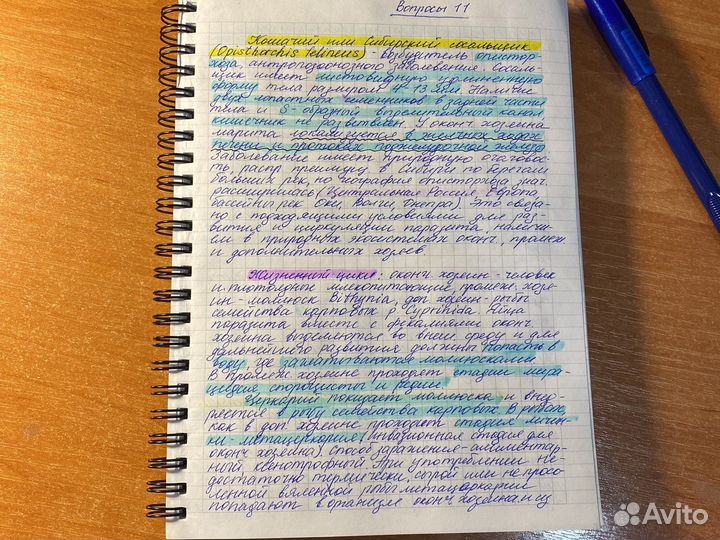 Вопросы 11
Кошачий или Сибирский сосальщик
(Opisthorchis felineus) - возбудитель опистор-
хоза, антропозоонозного заболевания. Сосаль-
щик имеет листовидную удлиненную
форму тела размером 4-13 мм. Наличие
двух лопастных семенников в задней части
тела и S-образный выделительный канал
кишечник не разветвлен. У оконч. хозяина
марита локализуется в желчных ходах
печени и протоках поджелудочной железы
Заболевание имеет природную очаговос-
ть, распр. преимущ. в Сибири по берегам
больших рек, но география описторхоза знач.
расширилась (Центральная Россия, Европа
бассейны рек Оки, Волги, Днепра). Это связа-
но с подходящими условиями для раз-
вития и циркуляции паразита, наличи-
ем в природных экосистемах оконч., промеж.
и дополнительных хозяев.
Жизненный цикл: оконч. хозяин - человек
и плотоядные млекопитающие, промеж. хозя-
ин - моллюск Bithynia, доп. хозяин - рыбы
семейства карповых р. Cyprinida. Яйца
паразита вместе с фекалиями оконч.
хозяина выделяются во внеш. среду и для
дальнейшего развития должны попасть в
воду, где заглатываются моллюсками
В промеж. хозяине проходят стадии мира-
цидия, спороцисты и редии.
Церкарий покидает моллюска и внед-
ряется в рыбу семейства карповых. В рыбах,
как в доп. хозяине проходит стадия личин-
ки - метацеркария (инвазионная стадия для
оконч. хозяина). Способ заражения - алиментар-
ный, ксенотрофный. При употреблении не-
достаточно термически, сырой или не просо-
ленной вяленой рыбы метацеркарии
попадают в организм оконч. хозяина и из
Avito